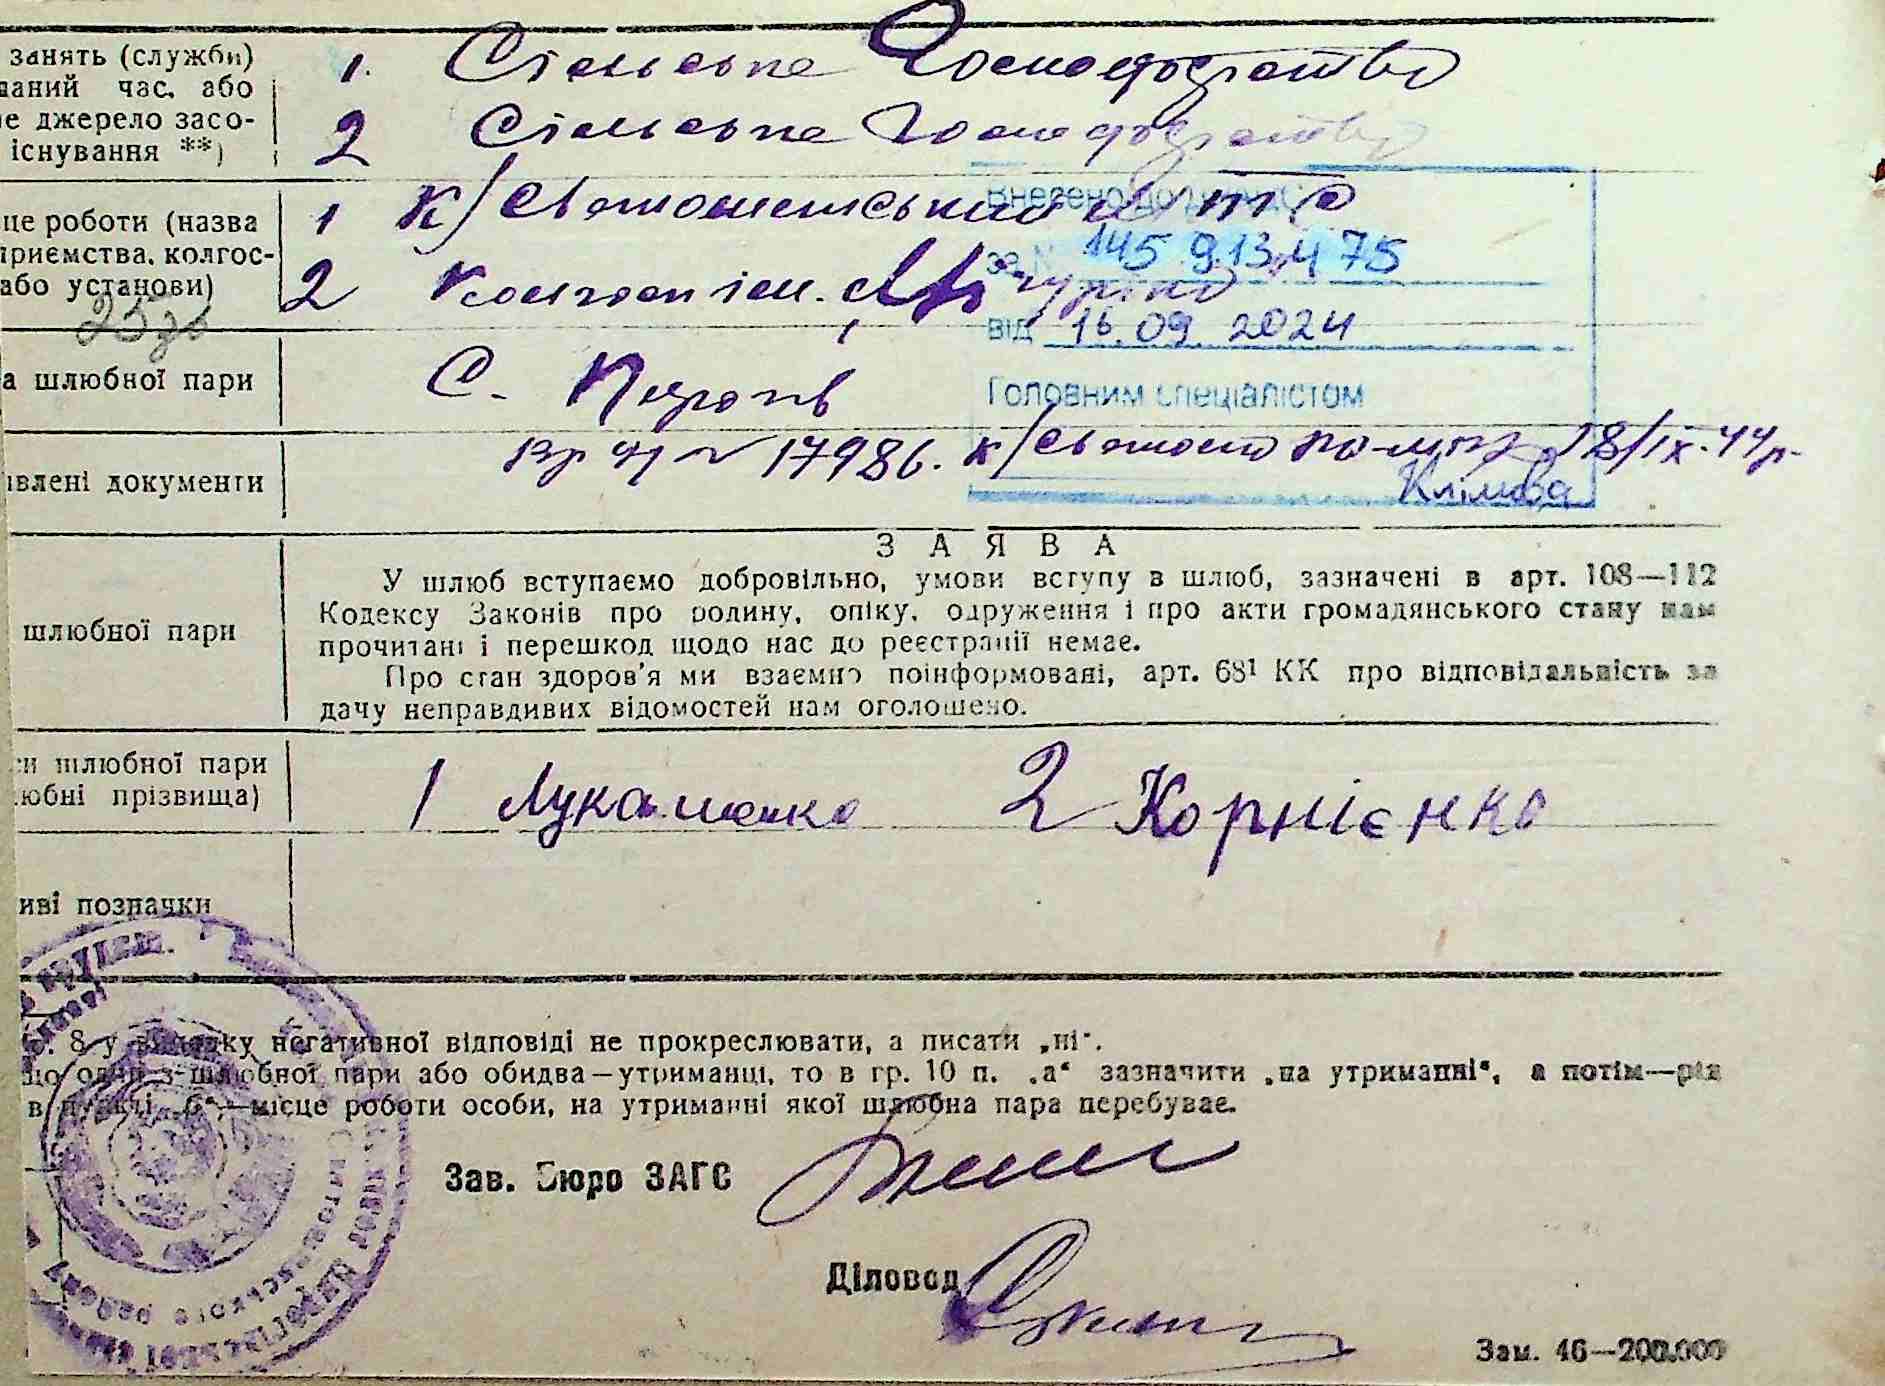 занять (служби) 1. Сільське Господарство
даний час, або
не джерело засо- 2 Сільське Господарство
існування **)
це роботи (назва 1 к/
приємства, колгос-
або установи) 2 Колгосп ім.
Внесено до ДРАЦС
за № 145 9.13.475
від 16.09.2024
Головним спеціалістом
Клімова
а шлюбної пари С.
17986. 18/ІХ-44р.
влені документи
ЗАЯВА
У шлюб вступаємо добровільно, умови вступу в шлюб, зазначені в арт. 108—112
шлюбної пари Кодексу Законів про родину, опіку, одруження і про акти громадянського стану нам
прочитані і перешкод щодо нас до реєстрації немає.
Про стан здоров'я ми взаємно поінформовані, арт. 68¹ КК про відповідальність за
дачу неправдивих відомостей нам оголошено.
и шлюбної пари 1 Лукашенко 2 Корнієнко
юбні прізвища)
иві позначки
. 8 у випадку негативної відповіді не прокреслювати, а писати „ні“.
що один з шлюбної пари або обидва—утриманці, то в гр. 10 п. „а“ зазначити „на утриманні“, а потім—рід
в пункті „б“—місце роботи особи, на утриманні якої шлюбна пара перебуває.
Зав. Бюро ЗАГС
Діловод
Зам. 46—200.000